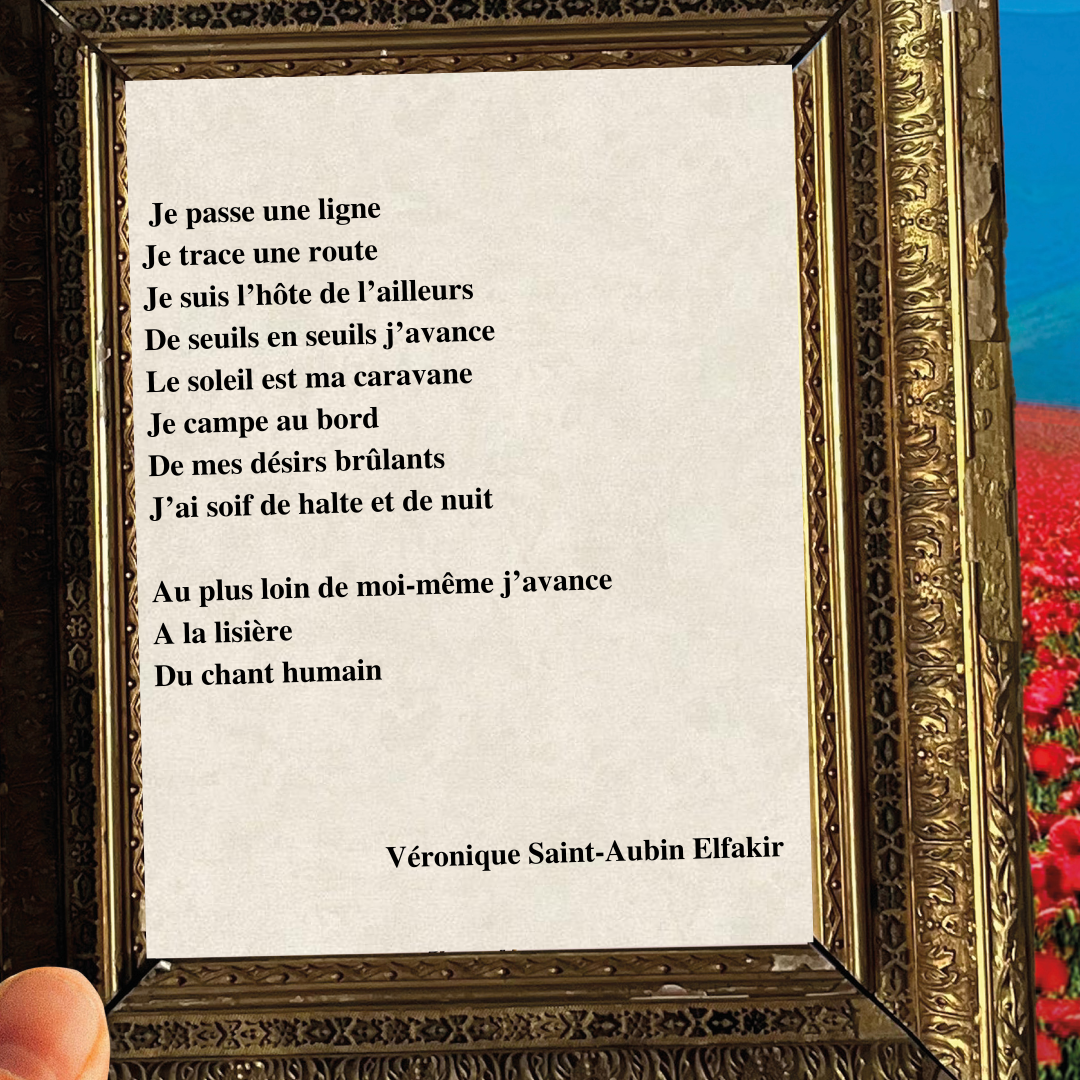 Je passe une ligne
Je trace une route
Je suis l’hôte de l’ailleurs
De seuils en seuils j’avance
Le soleil est ma caravane
Je campe au bord
De mes désirs brûlants
J’ai soif de halte et de nuit
Au plus loin de moi-même j’avance
A la lisière
Du chant humain
Véronique Saint-Aubin Elfakir